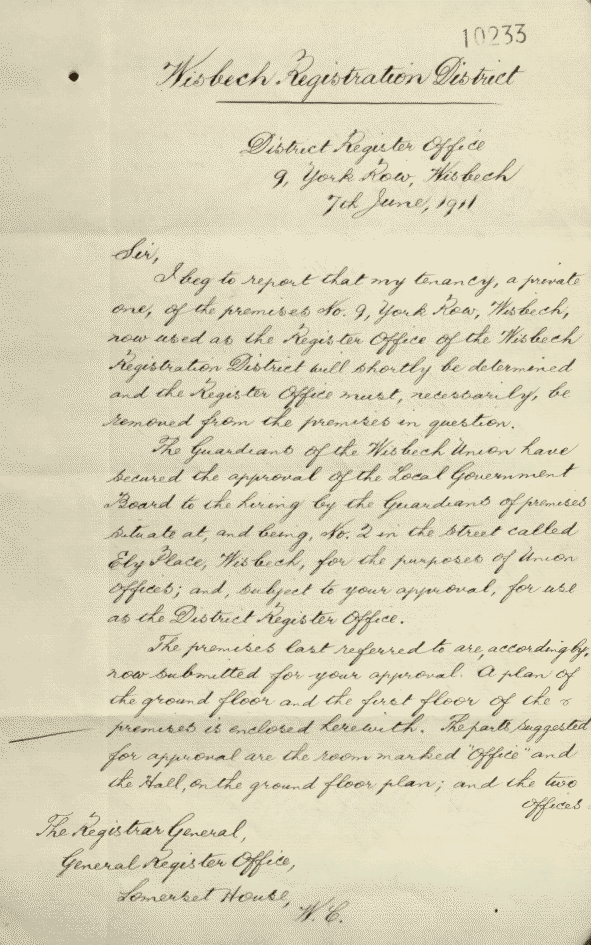 10233
Wisbech Registration District
District Register Office
9, York Row, Wisbech
7th June, 1911
Sir,
I beg to report that my tenancy, a private
one, of the premises No. 9, York Row, Wisbech,
now used as the Register Office of the Wisbech
Registration District will shortly be determined
and the Register Office must, necessarily, be
removed from the premises in question.
The Guardians of the Wisbech Union have
secured the approval of the Local Government
Board to the hiring by the Guardians of premises
situate at, and being, No. 2 in the street called
Ely Place, Wisbech, for the purposes of Union
Offices; and, subject to your approval, for use
as the District Register Office.
The premises last referred to are, accordingly,
now submitted for your approval. A plan of
the ground floor and the first floor of the
premises is enclosed herewith. The parts suggested
for approval are the room marked "Office" and
the Hall, on the ground floor plan; and the two
Offices
The Registrar General,
General Register Office,
Somerset House,
W.C.